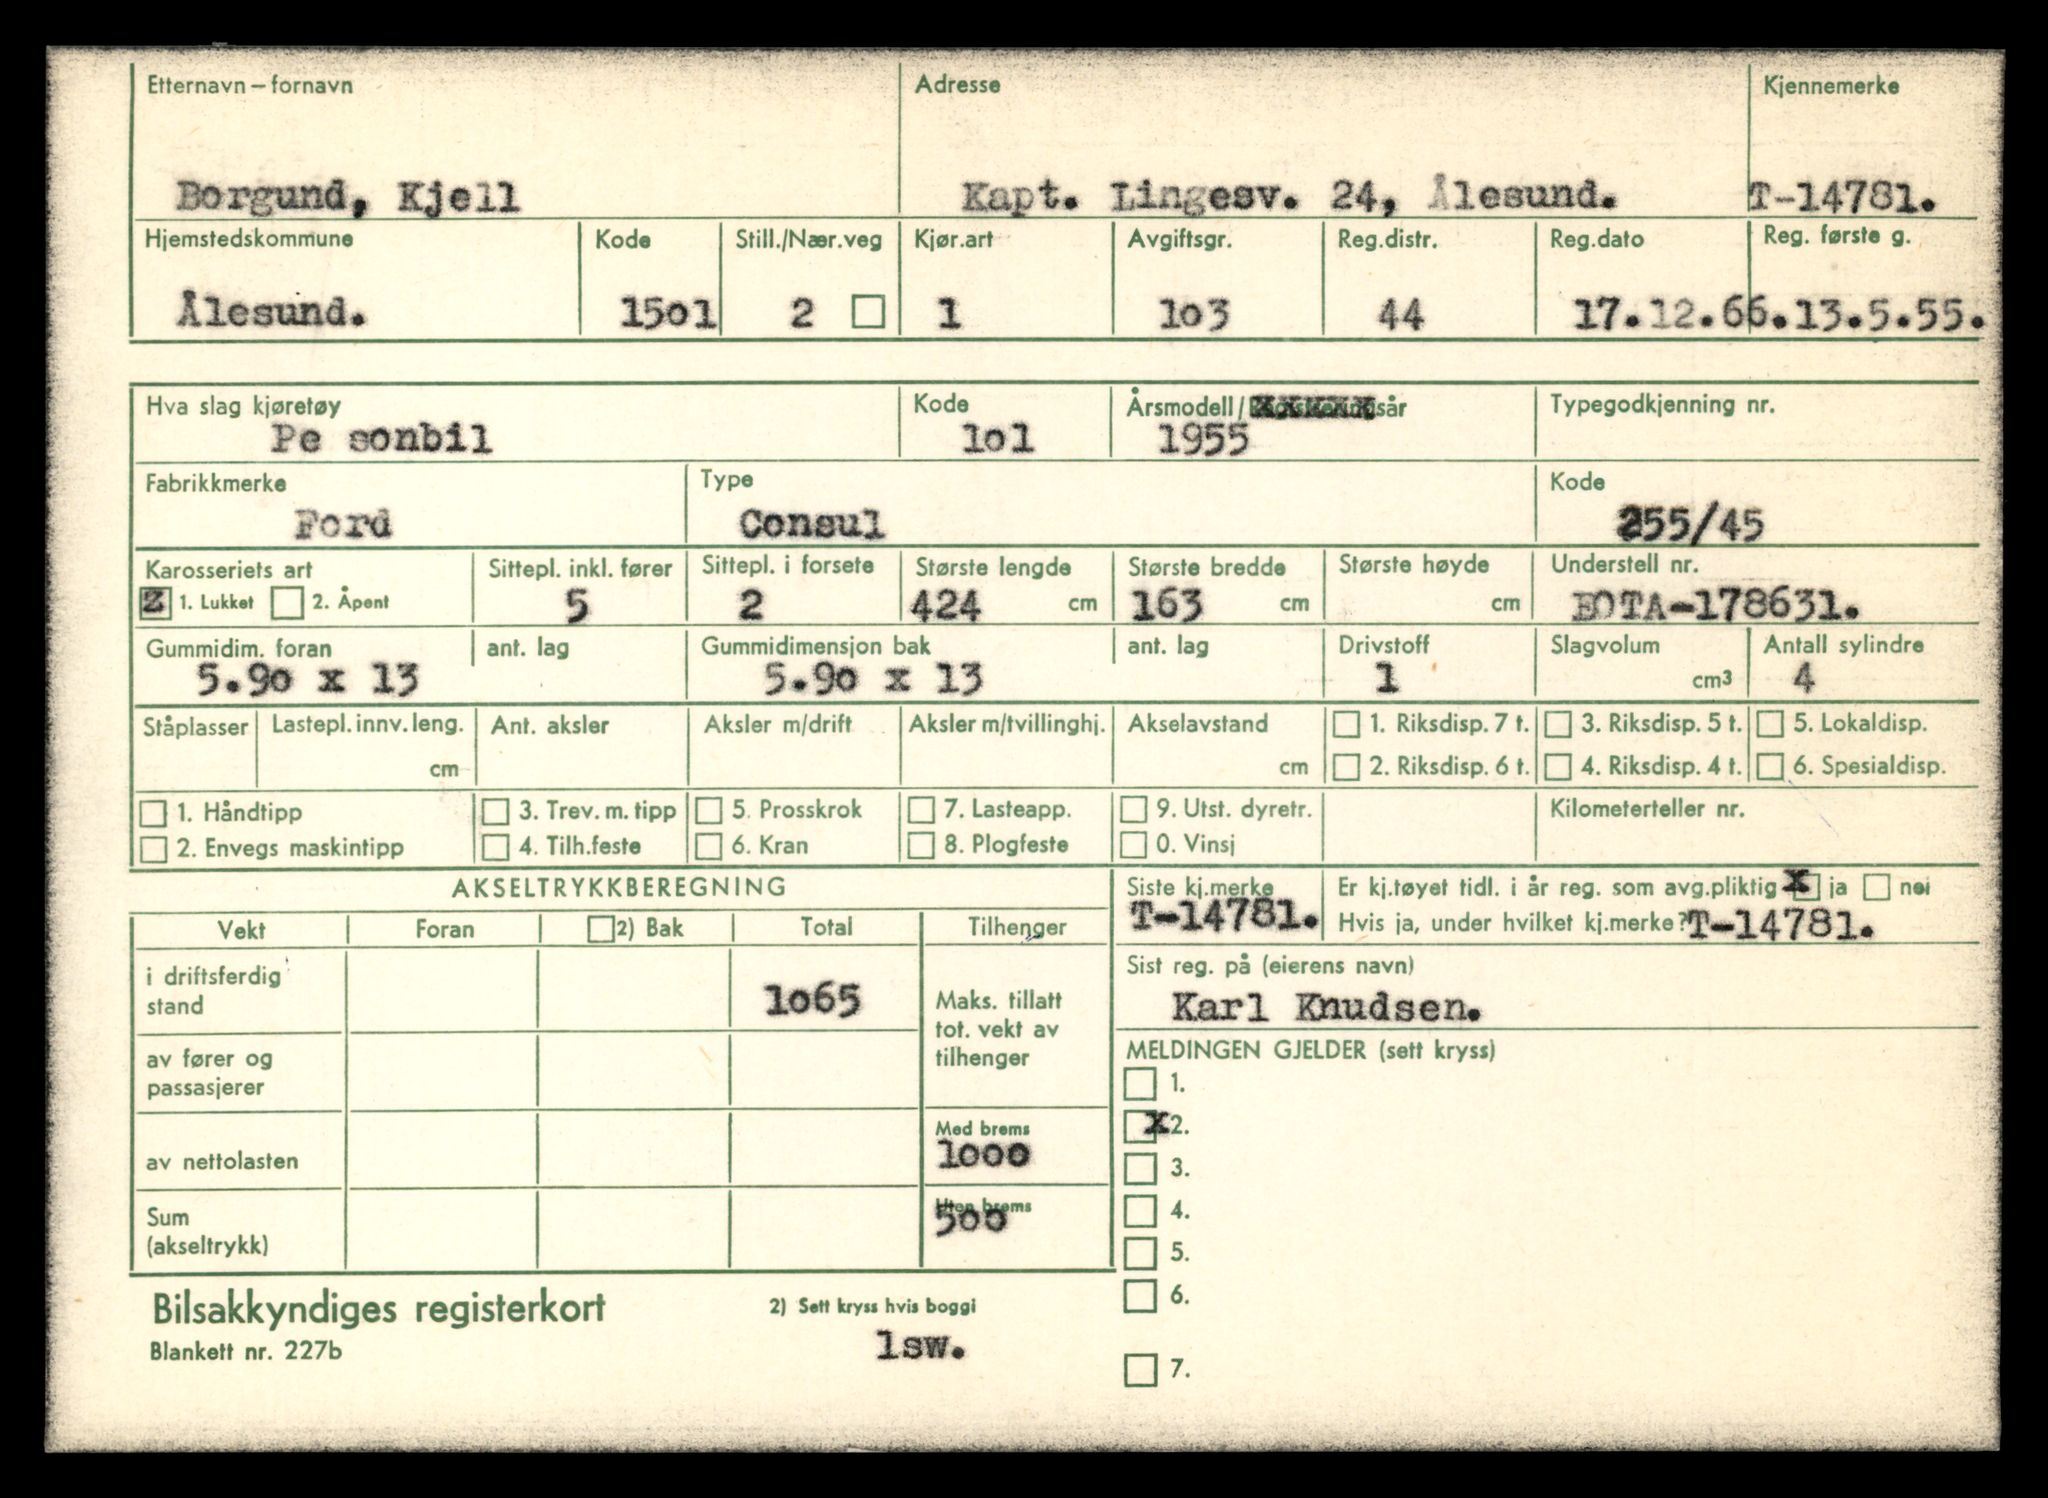 Etternavn – fornavn Adresse Kjennemerke
Borgund, Kjell Kapt. Lingesv. 24, Ålesund. T-14781.
Hjemstedskommune Kode Still./Nær.veg Kjør.art Avgiftsgr. Reg.distr. Reg.dato Reg. første g.
Ålesund. 15o1 2 1 1o3 44 17.12.66. 13.5.55.
Hva slag kjøretøy Kode Årsmodell/Registreringsår Typegodkjenning nr.
Pe sonbil 1o1 1955
Fabrikkmerke Type Kode
Ford Consul 255/45
Karosseriets art Sittepl. inkl. fører Sittepl. i forsete Største lengde Største bredde Største høyde Understell nr.
1. Lukket 2. Åpent 5 2 424 cm 163 cm cm EOTA-178631.
Gummidim. foran ant. lag Gummidimensjon bak ant. lag Drivstoff Slagvolum Antall sylindre
5.9o x 13 5.9o x 13 1 cm³ 4
Ståplasser Lastepl. innv. leng. Ant. aksler Aksler m/drift Aksler m/tvillinghj. Akselavstand 1. Riksdisp. 7 t. 3. Riksdisp. 5 t. 5. Lokaldisp.
cm cm 2. Riksdisp. 6 t. 4. Riksdisp. 4 t. 6. Spesialdisp.
1. Håndtipp 3. Trev. m. tipp 5. Prosskrok 7. Lasteapp. 9. Utst. dyretr. Kilometerteller nr.
2. Envegs maskintipp 4. Tilh.feste 6. Kran 8. Plogfeste 0. Vinsj
AKSELTRYKKBEREGNING Siste kj.merke Er kj.tøyet tidl. i år reg. som avg.pliktig x ja nei
T-14781. Hvis ja, under hvilket kj.merke? T-14781.
Vekt Foran 2) Bak Total Tilhenger
Sist reg. på (eierens navn)
i driftsferdig stand 1o65 Karl Knudsen.
Maks. tillatt tot. vekt av tilhenger
av fører og passasjerer
MELDINGEN GJELDER (sett kryss)
1.
x 2.
Med brems
av nettolasten 1ooo 3.
Uten brems
Sum (akseltrykk) 5oo 4.
5.
6.
Bilsakkyndiges registerkort 2) Sett kryss hvis boggi
Blankett nr. 227b lsw.
7.